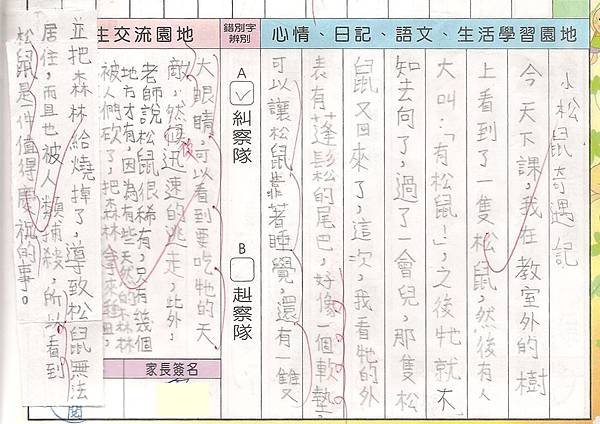 心情、日記、語文、生活學習園地
小松鼠奇遇記
今天下課,我在教室外的樹
上看到了一隻松鼠,然後有人
大叫:「有松鼠!」之後牠就不
知去向了,過了一會兒,那隻松
鼠又回來了,這次,我看牠的外
表有蓬鬆的尾巴,好像一個軟墊,
可以讓松鼠靠著睡覺,還有一雙
錯別字
辨別
A
糾察隊
B
赳察隊
生交流園地
大眼睛,可以看到要吃牠的天
敵,然後迅速的逃走,此外,
老師說松鼠很稀有,只有幾個
地方才有,因為有些天然的森林
被人們砍了,把森林
並把森林給燒掉了,導致松鼠無法
居住,而且也被人類捕殺,所以看到
松鼠是一件值得慶祝的事。
家長簽名
閱